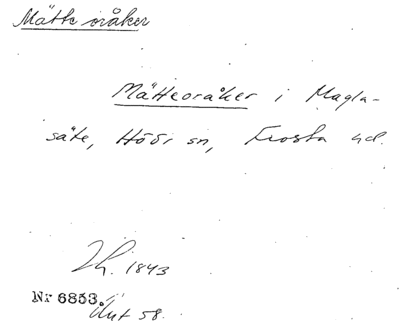 Mätte oråker
Mätteoråker i Magla-
säte, Höörs sn, Frosta hd.
Th. 1843
Nr 6853.
Avt 58.